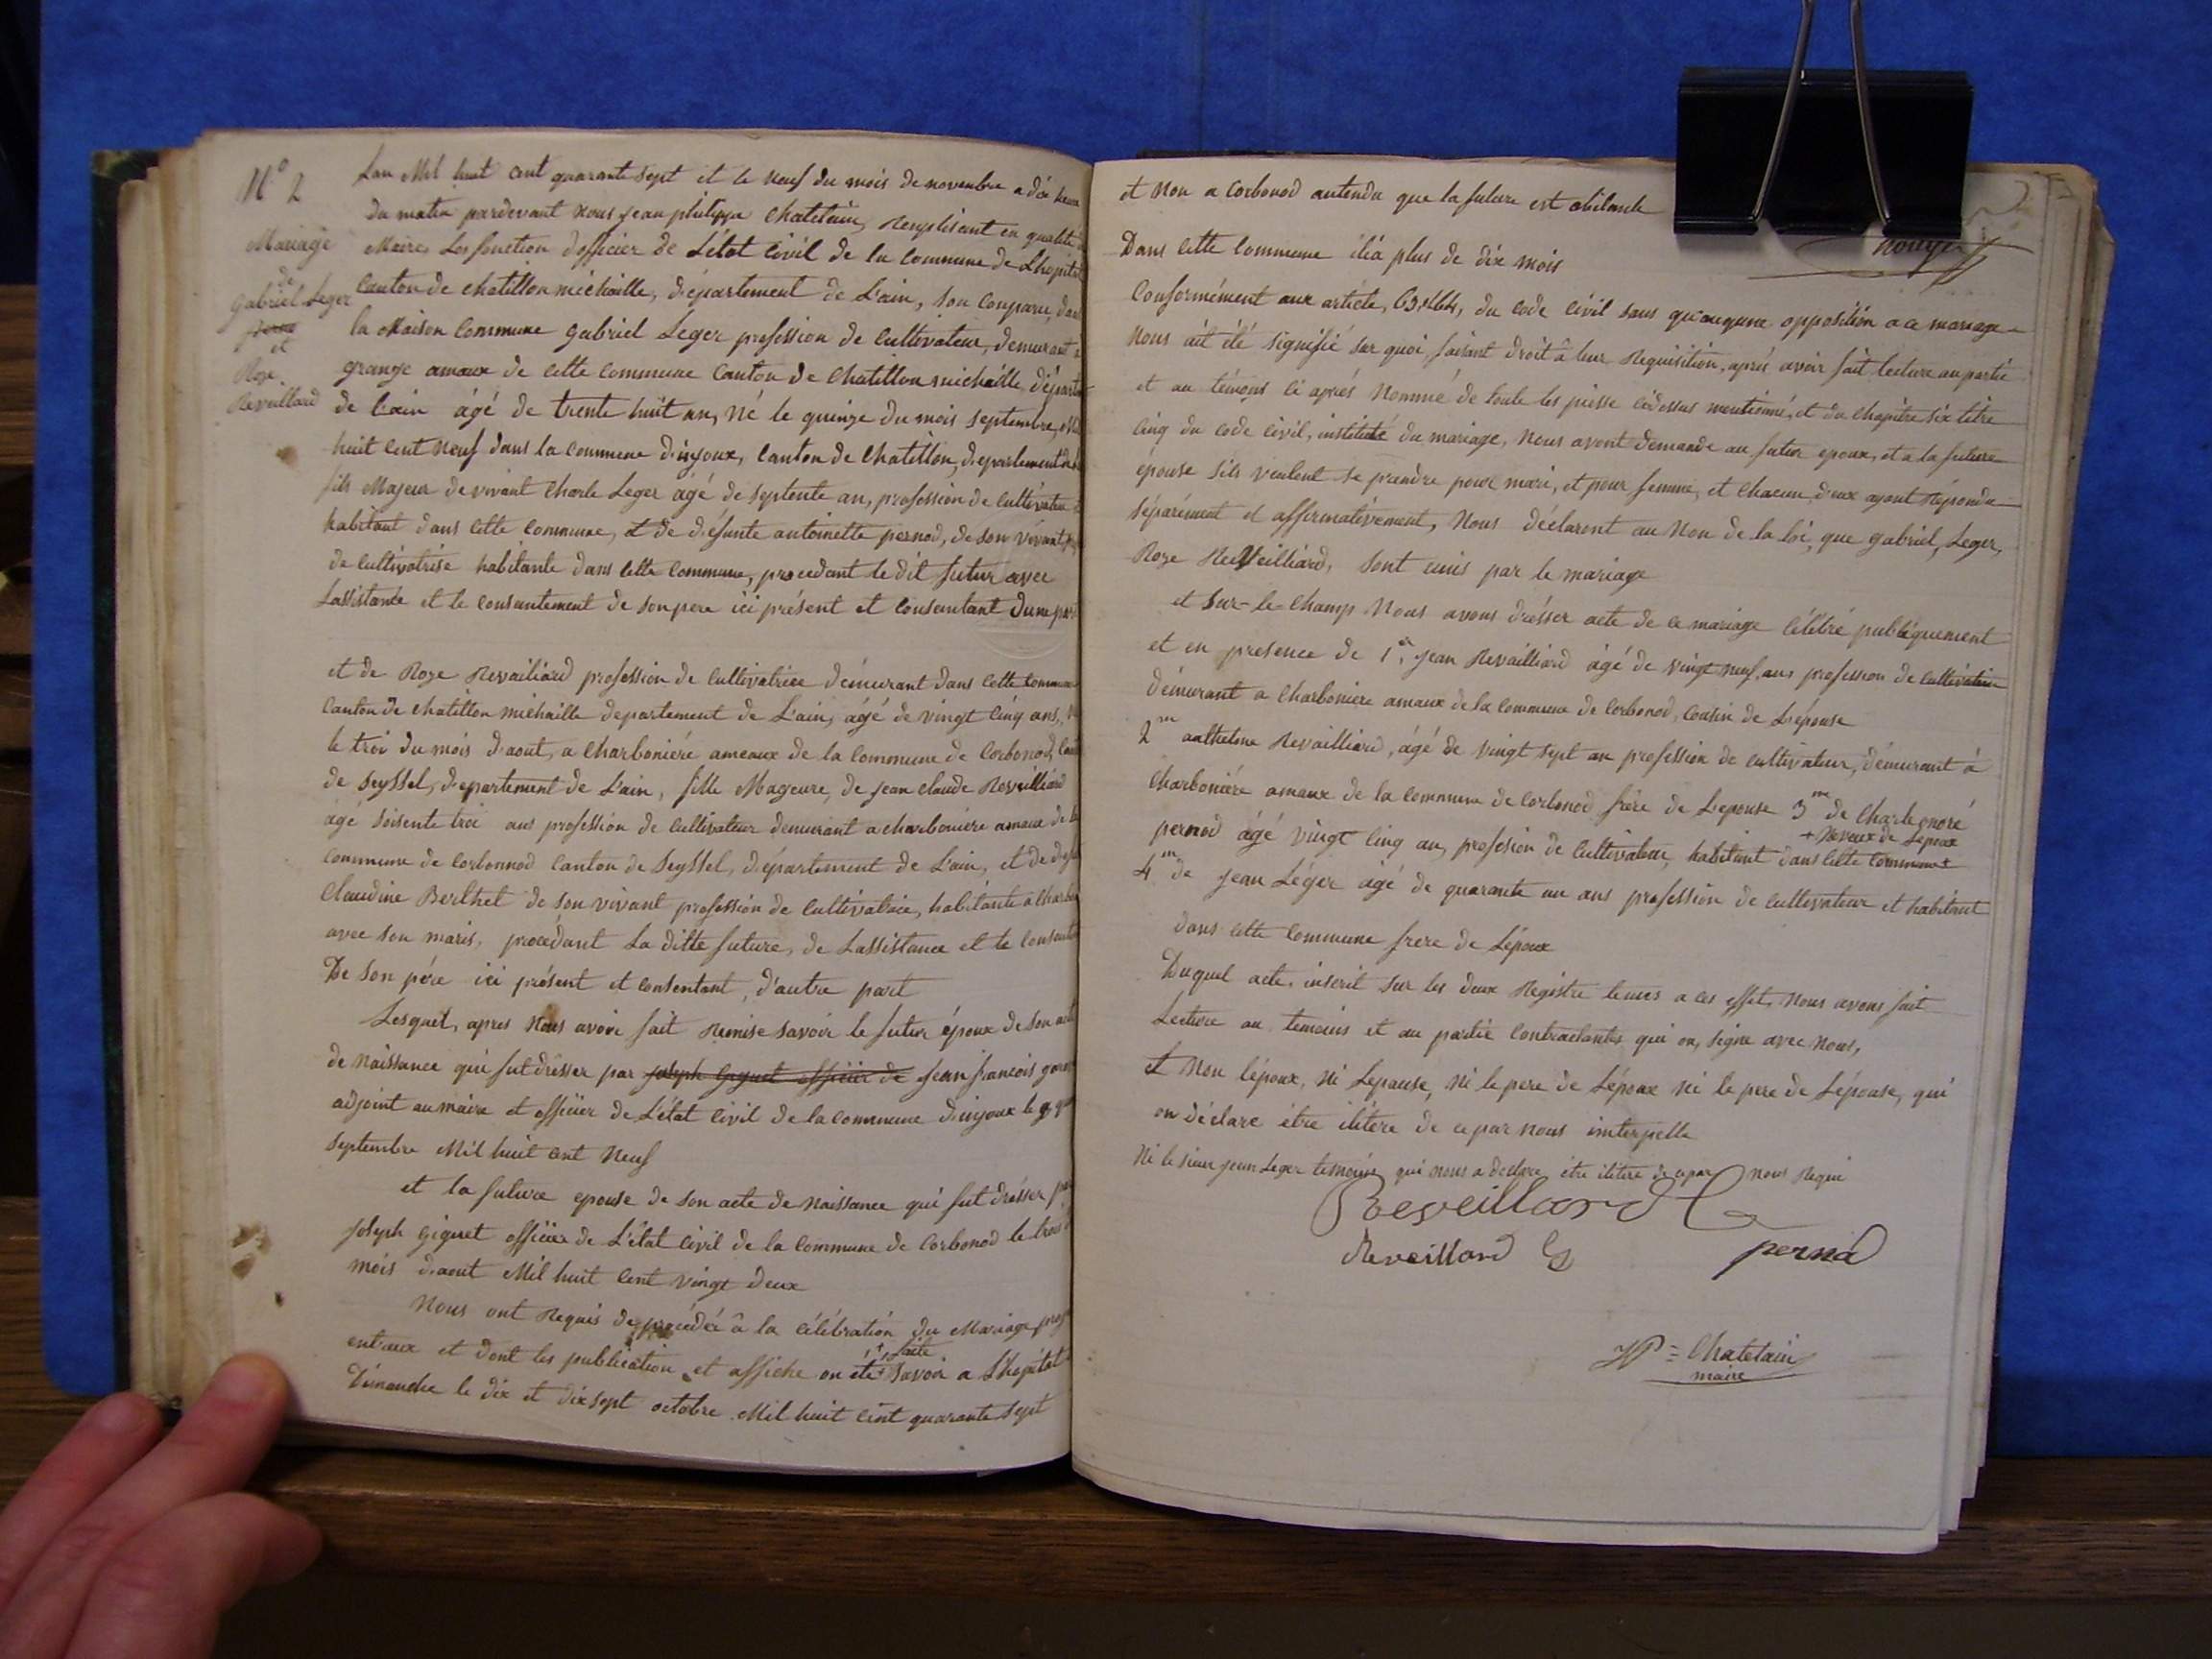 N.o 2
Mariage
de
Gabriel Leger
et
Roze
Revillard
Lan Mil huit cent quarante sept et le neuf du mois de novembre a dix heure
du matin pardevant nous jean philippe Chatelain, Remplisant en qualité
Maire, Les fonction d'officier de L'état Civil de la Commune de Lhopital
Canton de chatillon michaille, département de L'ain, son Comparu, dans
la Maison Commune gabriel Leger profession de Cultivateur, demurant a
grange amaux de cette commune Canton de Chatillon michaille, départ
de L'ain âgé de trente huit an, né le quinze du mois septembre, Mil
huit cent neuf dans la commune d'injoux, Canton de Chatillon, departement de
fils Majeur de vivant Charle Leger âgé de septente an, profession de Cultivateur
habitant dans cette commune, et de défunte antoinette pernod, de son vivant
de Cultivatrise habitante dans cette commune, procedant le dit futur avec
Lassistante et le Consantement de son pere ici présent et Consantant dune part
et de Roze Revailiard profession de Cultivatrice démurant dans cette commune
Canton de chatillon michaille departement de L'ain, âgé de vingt cinq ans,
le troi du mois d'aout, a Charboniere ameaux de la Commune de Corbonod,
de Seyssel, departement de L'ain, fille Mageure, de jean claude Reveilliard
age soisente troi ans profession de Cultivateur demurant a charboniere amaux de la
commune de Corbonnod Canton de Seyssel, département de L'ain, et de
Claudine Berthet de son vivant profession de Cultivatrice, habitante a
avec son maris, procédant La ditte future, de Lassistance et le
De son pére ici présent et Consentant, d'autre part
Lesquel, apres Nous avoir fait Remise savoir le futur époux de son acte
de naissance qui fut drésser par joseph Giguet officier de jean francois
adjoint au maire et officier de L'état civil de la commune d'injoux le
septembre Mil huit cent Neuf
et la future epouse de son acte de Naissance qui fut drésser par
joseph Giguet officier de L'état Civil de la Commune de Corbonod le troi
mois d'aout Mil huit Cent vingt deux
Nous ont Requis de procédée â la célébration du Mariage
entaux et dont les publication et affiche on été savoir a Lhopital
faite
Dimanche le dix et dix sept octobre Mil huit cent quarante sept
et Non a Corbonod autendu que la future est abitante
Dans cette Commune il ia plus de dix mois
Conformément aux article, 63 et 64, du Code Civil sans qu'auqune opposition a ce mariage
Nous ait été signifié sur quoi, faisant droit â leur Requisition, aprés avoir fait lecture au partie
et au témons ci aprés Nommé de toute les piesse cidessus mentionné, et du chapitre six titre
cinq du code civil, institulé du mariage, Nous avont demande au futur epoux, et a la future
épouse sils veulent se prandre pour mari, et pour femme, et Chacun d'eux ayant Répondu
séparément et affirmativement, Nous déclarent au Non de la loi, que gabriel, Leger,
Roze ReVeilliard, sont unis par le mariage
et Sur-le-champ Nous avons drésser acte de ce mariage célébré publiquement
et en presence de 1er jean Revailliard âgé de vingt neuf ans profession de Cultivateur
démurant a Charboniere amaux de la Commune de Corbonod, Cousin de Lépouse
2me anthelme Revailliard, âgé de vingt sept an profession de cultivateur, démurant à
Charboniére amaux de la Commune de Corbonod frére de Lepouse 3me de Charle
pernod âgé vingt cinq an, profesion de Cultivateur, habitant dans cette Commune +
+ Neveux de Lepoux
4me de jean Léger âgé de quarante un ans profession de cultivateur et habitant
dans cette Commune frere de Lépoux
Duquel acte, inscrit sur les deux Registre tenus a ces effet, Nous avons fait
Lecture au temoins et au partie Contractantes qui on, signe avec Nous,
et Non lépoux, Ni Lepouse, Ni le pere de Lépoux Ni le pere de Lépouse, qui
on déclaré étre ilitére de ce par nous interpelle
Ni le sieur jean Leger temoins qui nous a déclare étre ilitere de ce par nous Requi
Reveillard
Reveillard
perna
JP = Chatelain
maire